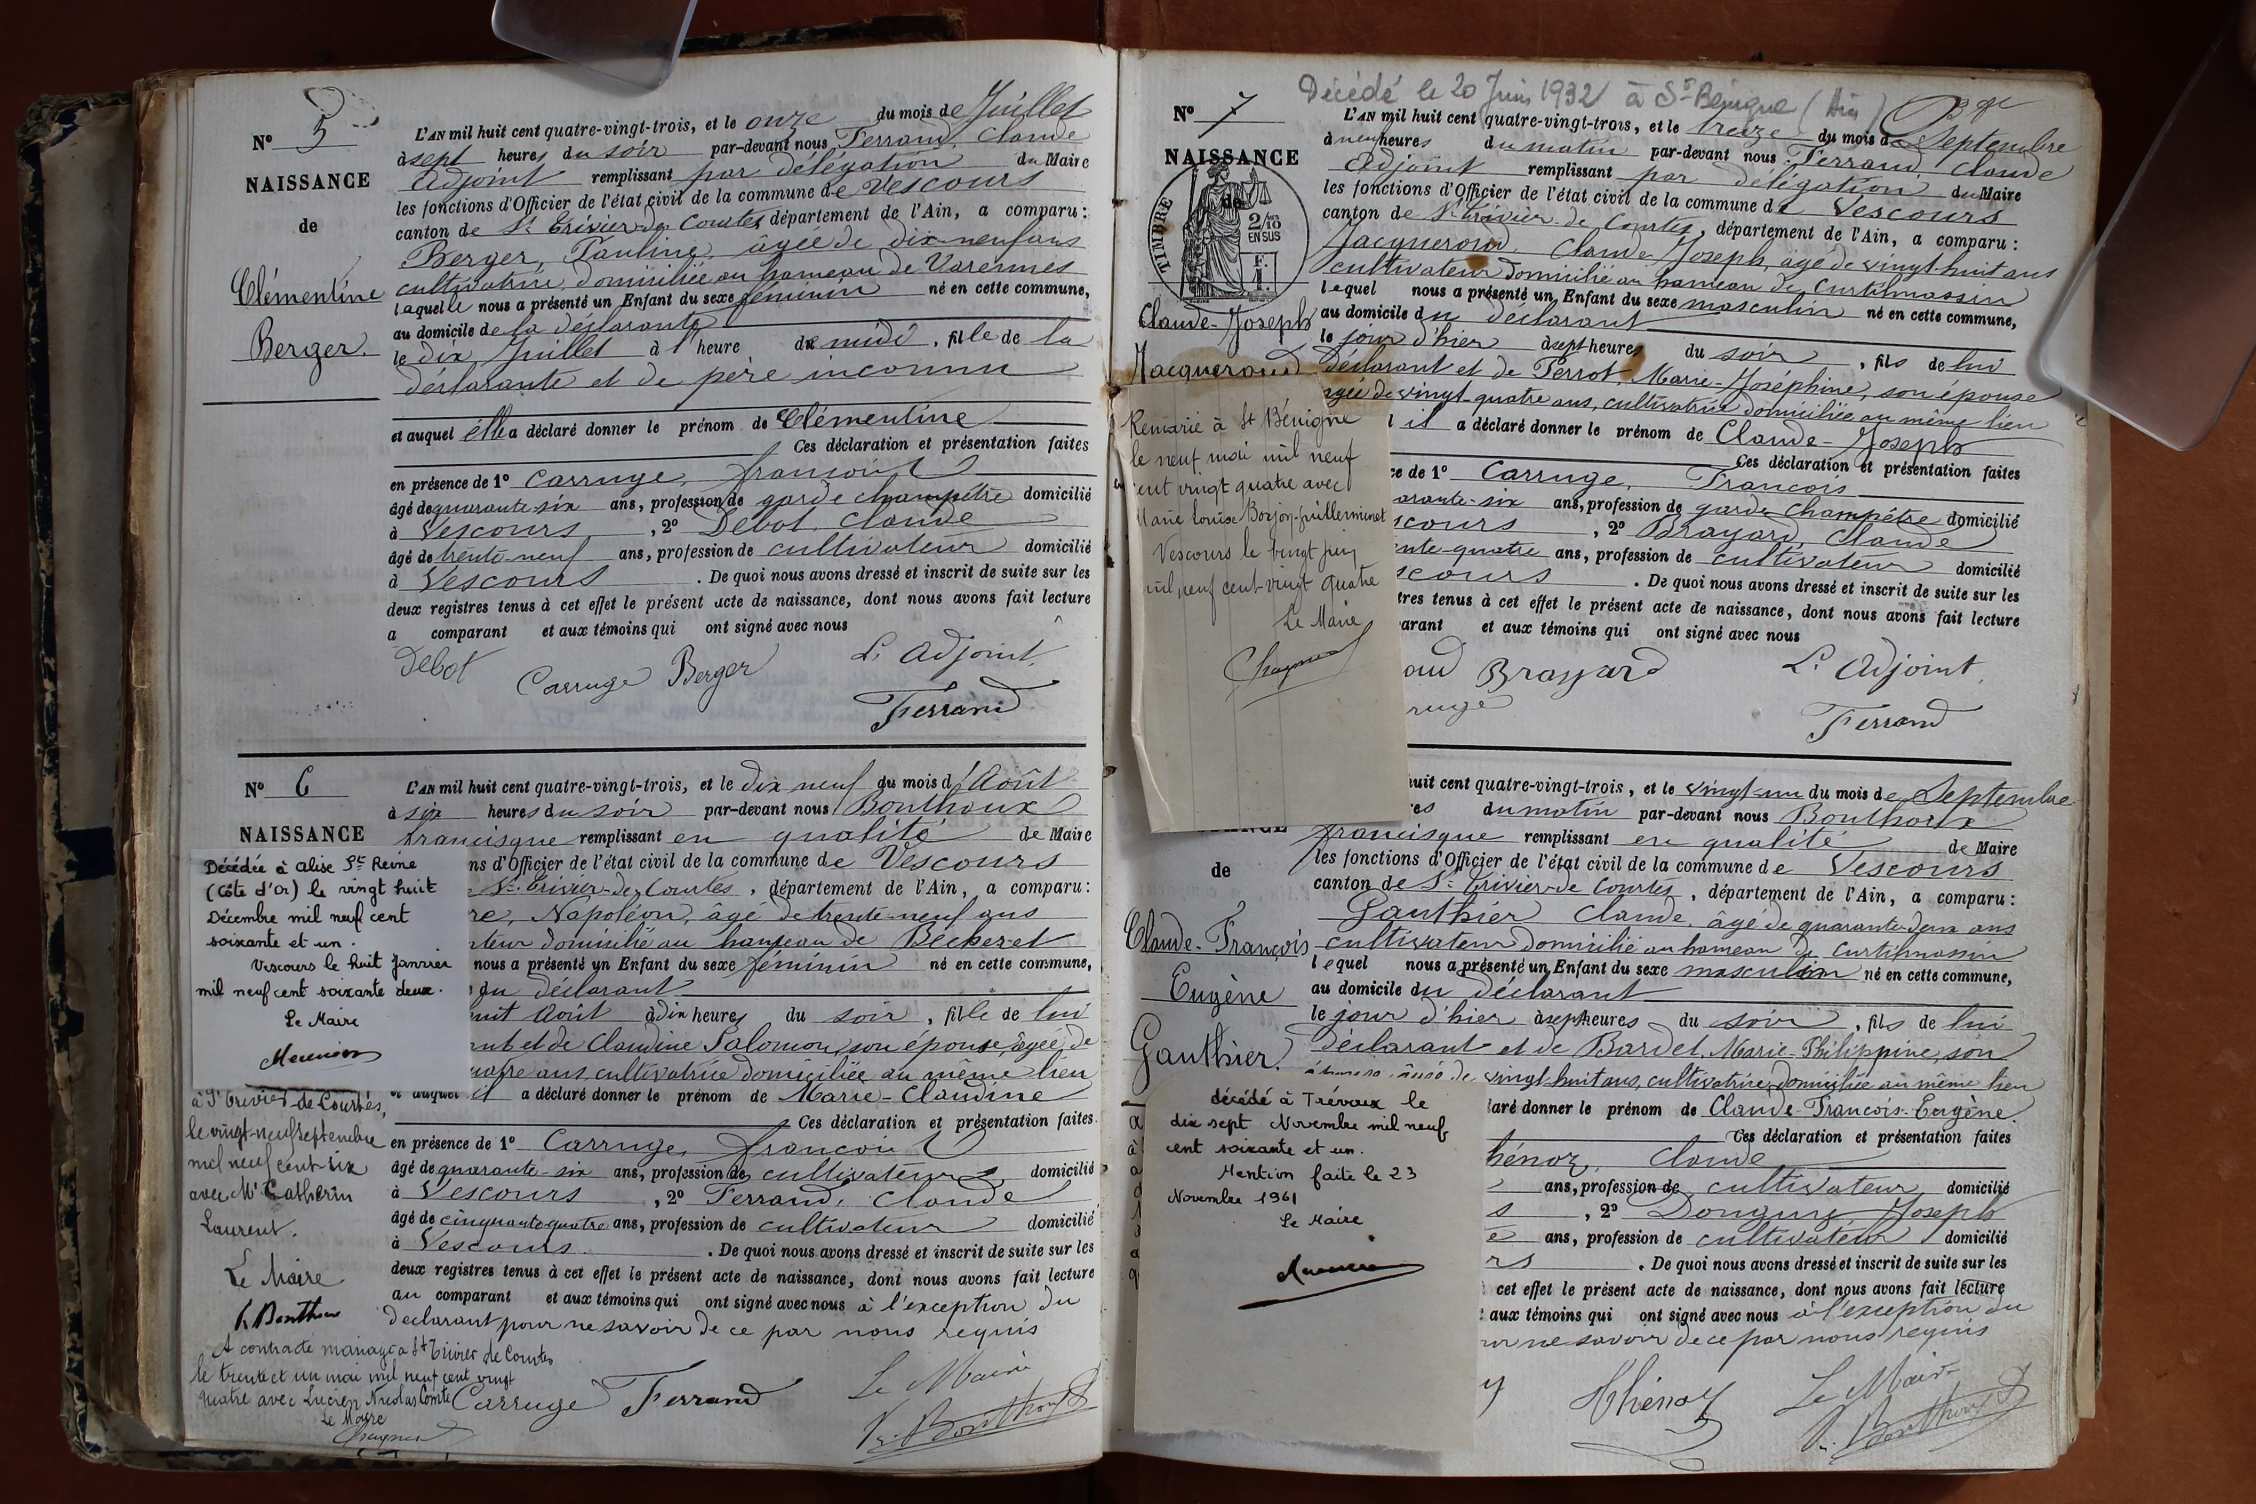 N° 5
NAISSANCE
de
Clémentine
Berger.
L'AN mil huit cent quatre-vingt-trois, et le onze du mois de Juillet
à sept heures du soir par-devant nous Ferrand, Claude
Adjoint remplissant par délégation du Maire
les fonctions d'Officier de l'état civil de la commune de Vescours
canton de St Trivier-de Courtes, département de l'Ain, a comparu :
Berger, Pauline, âgée de dix-neuf ans
cultivatrice, domiciliée au hameau de Varennes
laquelle nous a présenté un Enfant du sexe féminin né en cette commune,
au domicile de la déclarante
le dix Juillet à l'heure de midi, fille de la
déclarante et de père inconnu
et auquel elle a déclaré donner le prénom de Clémentine
Ces déclaration et présentation faites
en présence de 1° Carruge, François
âgé de quarante-six ans, profession de garde champêtre domicilié
à Vescours, 2° Debot, Claude
âgé de trente-neuf ans, profession de cultivateur domicilié
à Vescours. De quoi nous avons dressé et inscrit de suite sur les
deux registres tenus à cet effet le présent acte de naissance, dont nous avons fait lecture
a comparant et aux témoins qui ont signé avec nous
Debot Carruge Berger L'Adjoint,
Ferrand
N° 6
NAISSANCE
Décédée à Alise Ste Reine
(Côte d'Or) le vingt huit
Décembre mil neuf cent
soixante et un.
Vescours le huit Janvier
mil neuf cent soixante deux.
Le Maire
à St Trivier de Courtes,
le vingt-neuf septembre
mil neuf cent six
avec Mr Catherin
Laurent.
Le Maire
A contracté mariage à St Trivier de Courtes
le trente et un mai mil neuf cent vingt
quatre avec Lucien Nicolas Comte
Le Maire
L'AN mil huit cent quatre-vingt-trois, et le dix neuf du mois d'Août
à six heures du soir par-devant nous Bonthoux
Francisque remplissant en qualité de Maire
ns d'Officier de l'état civil de la commune de Vescours
St Trivier-de Courtes, département de l'Ain, a comparu :
re, Napoléon, âgé de trente-neuf ans
teur domicilié au hameau de Becherel
nous a présenté un Enfant du sexe féminin né en cette commune,
du déclarant
huit Août à dix heures du soir, fille de lui
ant et de Claudine Salomon, son épouse, âgée de
uatre ans, cultivatrice domiciliée au même lieu
et auquel il a déclaré donner le prénom de Marie-Claudine
Ces déclaration et présentation faites
en présence de 1° Carruge, François
âgé de quarante-six ans, profession de cultivateur domicilié
à Vescours, 2° Ferrand, Claude
âgé de cinquante-quatre ans, profession de cultivateur domicilié
à Vescours. De quoi nous avons dressé et inscrit de suite sur les
deux registres tenus à cet effet le présent acte de naissance, dont nous avons fait lecture
au comparant et aux témoins qui ont signé avec nous à l'exception du
déclarant pour ne savoir de ce par nous requis
Carruge Ferrand Le Maire
F. Bonthoux
Décédé le 20 Juin 1932 à St-Bénigne (Ain)
N° 7
NAISSANCE
de
TIMBRE
2/10
EN SUS
Claude-Joseph
Jacqueroud
L'AN mil huit cent quatre-vingt-trois, et le treize du mois de Septembre
à neuf heures du matin par-devant nous Ferrand, Claude
Adjoint remplissant par délégation du Maire
les fonctions d'Officier de l'état civil de la commune de Vescours
canton de St Trivier-de Courtes, département de l'Ain, a comparu :
Jacqueroud, Claude-Joseph, âgé de vingt-huit ans
cultivateur domicilié au hameau de Curtilmassin
lequel nous a présenté un Enfant du sexe masculin né en cette commune,
au domicile du déclarant
le jour d'hier à sept heures du soir, fils de lui
déclarant et de Perrot, Marie-Joséphine, son épouse
âgée de vingt-quatre ans, cultivatrice domiciliée au même lieu
il a déclaré donner le prénom de Claude-Joseph
Ces déclaration et présentation faites
ce de 1° Carruge, François
arante-six ans, profession de garde Champêtre domicilié
scours, 2° Brayard, Claude
ente-quatre ans, profession de cultivateur domicilié
scours. De quoi nous avons dressé et inscrit de suite sur les
tres tenus à cet effet le présent acte de naissance, dont nous avons fait lecture
arant et aux témoins qui ont signé avec nous
oud Brayard L'Adjoint,
ruge Ferrand
Remarié à St Bénigne
le neuf mai mil neuf
cent vingt quatre avec
Marie Louise Borjon-Guillerminet
Vescours le vingt juin
mil neuf cent vingt quatre
Le Maire
de
Claude-François
Eugène
Gauthier.
huit cent quatre-vingt-trois, et le vingt-un du mois de Septembre
res du matin par-devant nous Bonthoux
Francisque remplissant en qualité de Maire
les fonctions d'Officier de l'état civil de la commune de Vescours
canton de St Trivier-de Courtes, département de l'Ain, a comparu :
Gauthier Claude, âgé de quarante-deux ans
cultivateur domicilié au hameau de Curtilmassin
lequel nous a présenté un Enfant du sexe masculin né en cette commune,
au domicile du déclarant
le jour d'hier à sept heures du soir, fils de lui
déclarant et de Bardet, Marie-Philippine, son
épouse, âgée de vingt-huit ans, cultivatrice, domiciliée au même lieu
laré donner le prénom de Claude-François-Eugène.
Ces déclaration et présentation faites
hénoz, Claude
ans, profession de cultivateur domicilié
s, 2° Donguy, Joseph
e ans, profession de cultivateur domicilié
rs. De quoi nous avons dressé et inscrit de suite sur les
cet effet le présent acte de naissance, dont nous avons fait lecture
aux témoins qui ont signé avec nous à l'exception du
ur ne savoir de ce par nous requis
y Le Maire
F. Bonthoux
décédé à Trévoux le
dix sept Novembre mil neuf
cent soixante et un.
Mention faite le 23
Novembre 1961
Le Maire